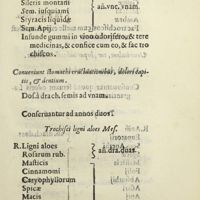 Siseris montani
Sem. insquiami
Styracis liquidæ
Sem. Apij.
an. vnc. vnam.
Infunde gummi in vino odorifero, & tere
medicinas, & confice cum eo, & fac tro
chiscos.
Conueniunt stomachi eructationibus, dolori capi-
tis, & dentium.
Dosis à drach. semis ad vnam.
Conseruantur ad annos duos.
Trochisci ligni aloes Mes.
R. Ligni aloes
Rosarum rub.
an. dra. duas.
Masticis
Cinnamomi
Caryophyllorum
Spicæ
Macis